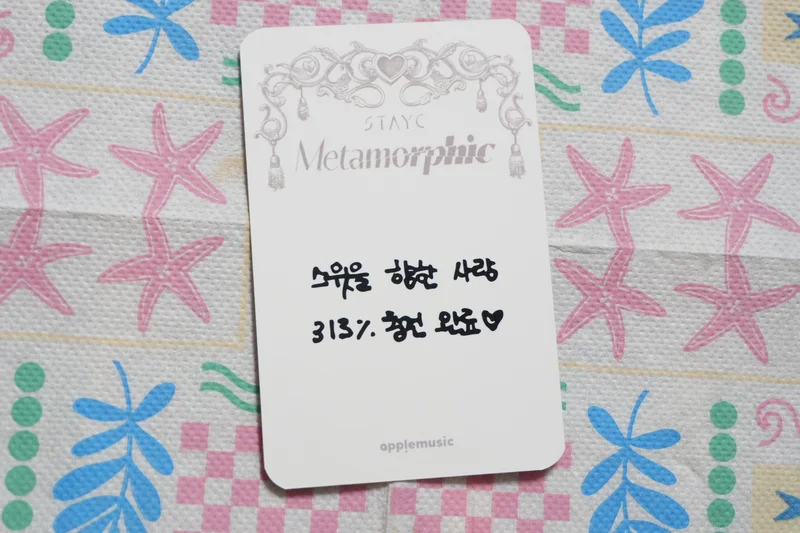 STAYC
Metamorphic
스윗을 향한 사랑
313% 충전 완료♥
applemusic